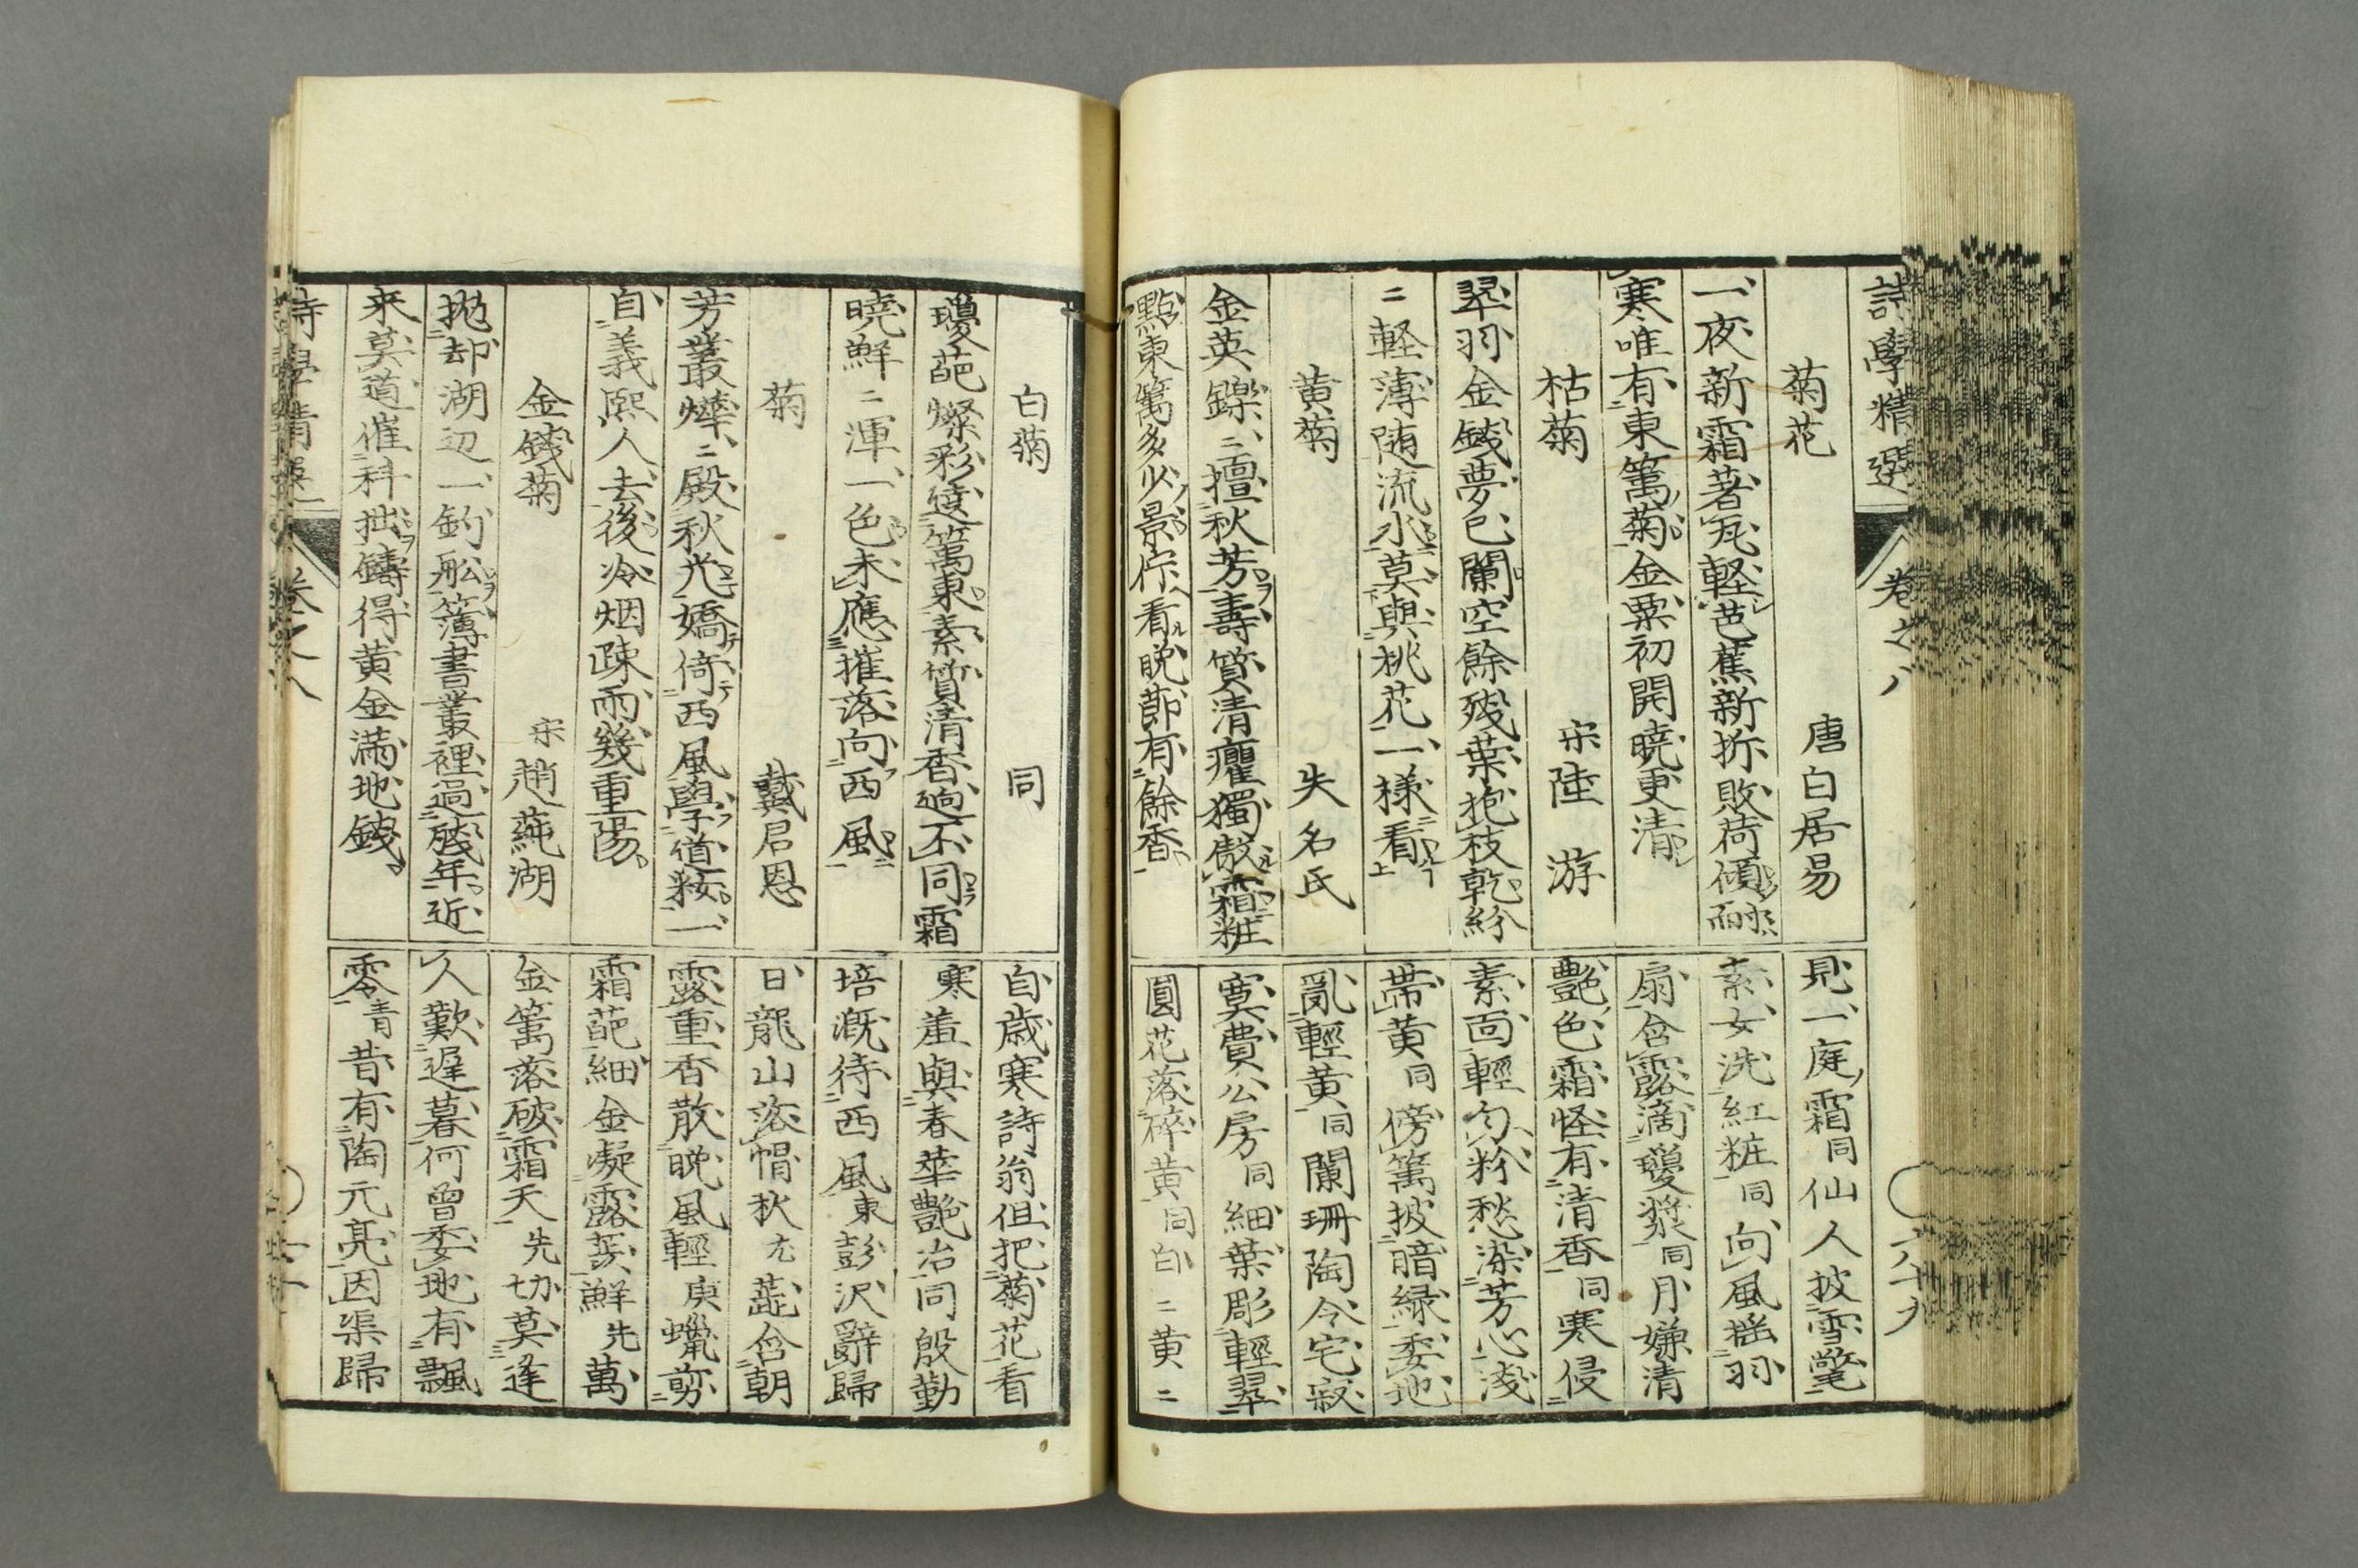 詩學精選 卷之八 六十九
菊花 唐白居易
一夜新霜著瓦軽芭蕉新折敗荷傾耐
寒唯有東篱菊金粟初開曉更清
枯菊 宋陸游
翠羽金錢夢已闌空餘殘葉抱枝乾紛
〻軽薄随流水莫與桃花一様看
黄菊 失名氏
金英鑠〻擅秋芳壽質清癯獨傲霜粧
點東篱多少景倧看晩節有餘香
見一庭霜同仙人披雪氅
素女洗紅粧同向風揺羽
扇含露滴瓊漿同月嫌清
艷色霜怪有清香同寒侵
素面輕匀粉愁染芳心淺
帶黄同傍篱披暗緑委地
亂輕黄同闌珊陶令宅寂
寞費公房同細葉彫輕翠
圓花落碎黄同白〻黄〻
白菊 同
瓊葩燦彩遶篱東素質清香迥不同霜
曉鮮〻渾一色未應摧落向西風
菊 戴君恩
芳叢燁〻殿秋光嬌倚西風學道粧一
自義熙人去後冷烟疎雨幾重陽
金錢菊 宋趙蓴湖
拋却湖辺一釣船簿書叢裡過殘年近
来莫道催科拙鑄得黄金滿地錢
自歳寒詩翁但把菊花看
寒羞與春華艷冶同殷勤
培漑待西風東彭沢辭歸
日龍山落帽秋尤蕋含朝
露重香散晩風輕庚蠟剪
霜葩細金凝露蕊鮮先萬
金篱落破霜天先切莫逢
人歎遅暮何曽委地有飄
零青昔有陶元亮因渠歸
詩學精選 卷之八